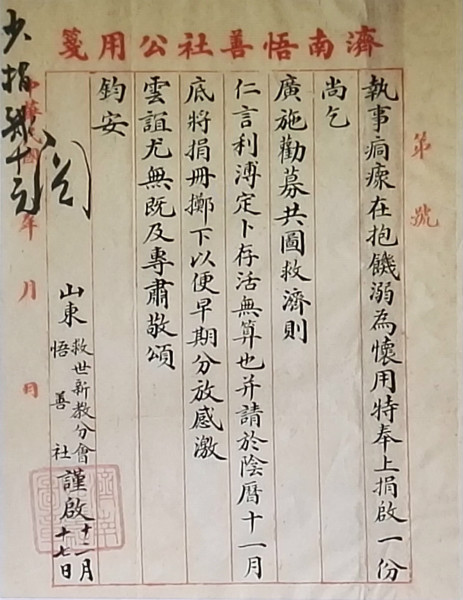 濟南悟善社公用箋
第 號
執事痌瘝在抱饑溺為懷用特奉上捐啟一份
尚乞
廣施勸募共圖救濟則
仁言利溥定卜存活無算也并請於陰曆十一月
底將捐冊擲下以便早期分放感激
雲誼尤無既及專肅敬頌
鈞安
山東救世新教分會悟善社謹啟十二月十七日
中華民國 年 月 日
少捐 十元